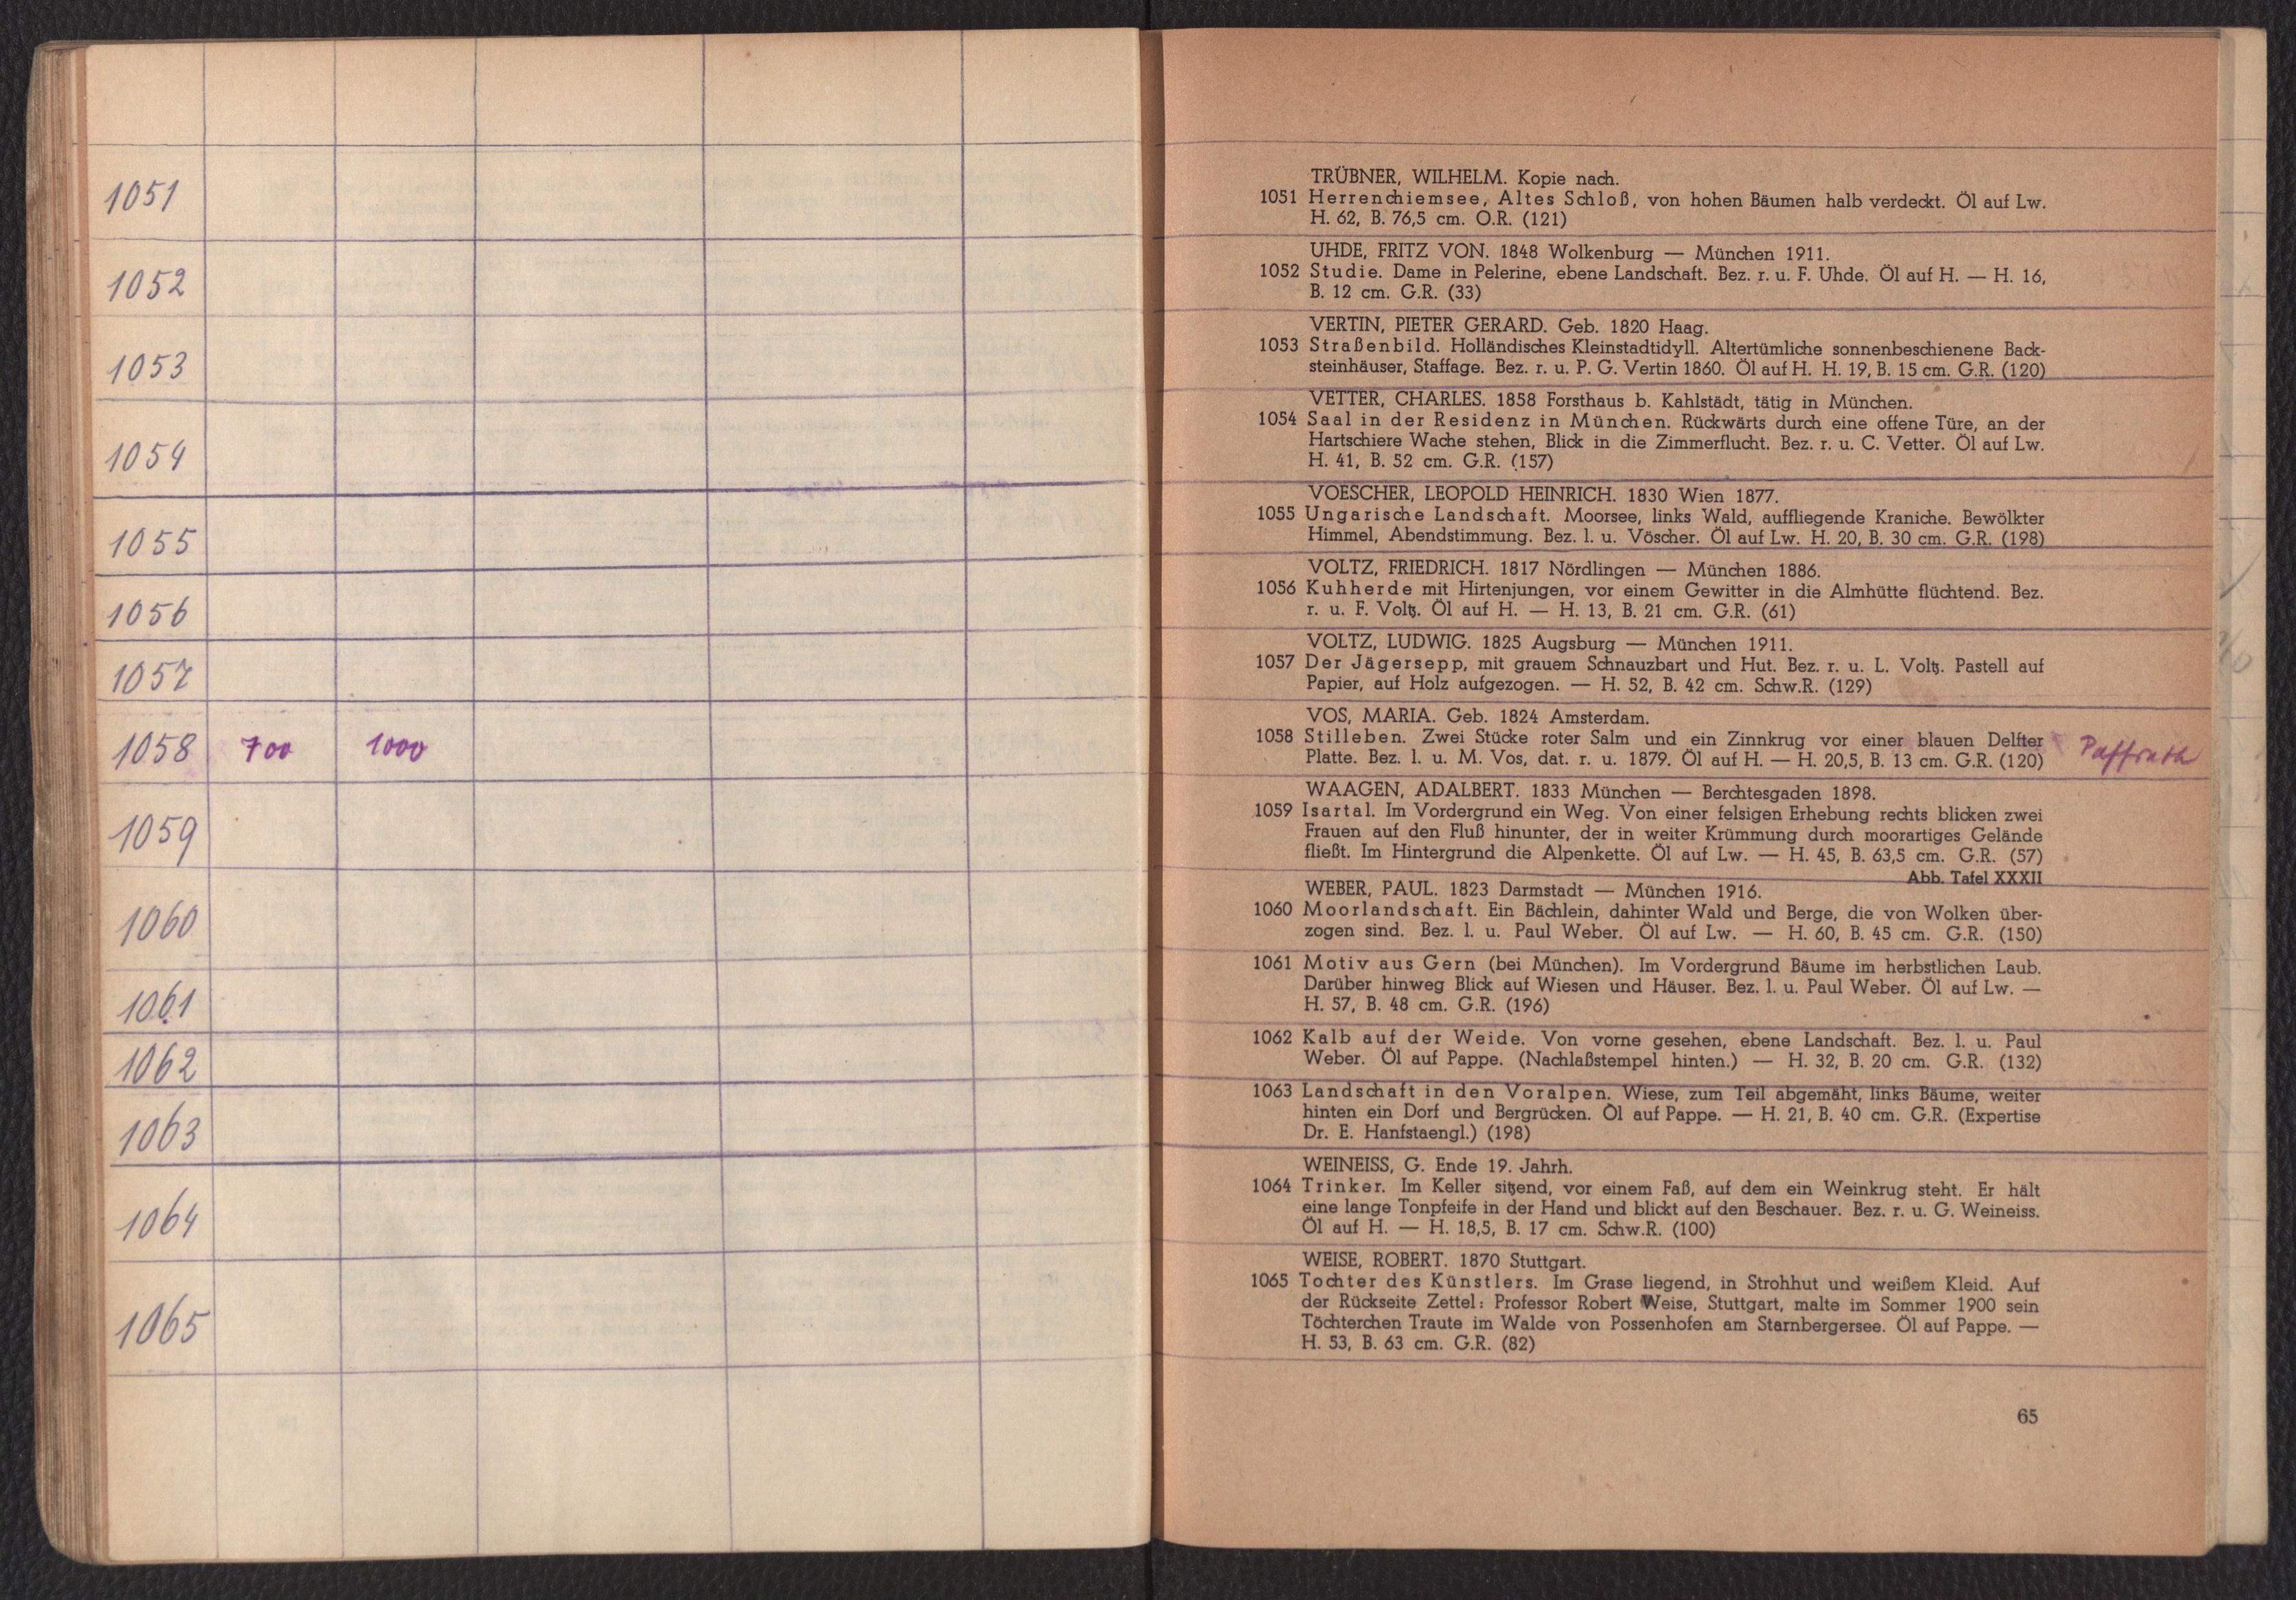 1051
1052
1053
1054
1055
1056
1057
1058 700 1000
1059
1060
1061
1062
1063
1064
1065
TRÜBNER, WILHELM. Kopie nach.
1051 Herrenchiemsee, Altes Schloß, von hohen Bäumen halb verdeckt. Öl auf Lw.
H. 62, B. 76,5 cm. O.R. (121)
UHDE, FRITZ VON. 1848 Wolkenburg — München 1911.
1052 Studie. Dame in Pelerine, ebene Landschaft. Bez. r. u. F. Uhde. Öl auf H. — H. 16,
B. 12 cm. G.R. (33)
VERTIN, PIETER GERARD. Geb. 1820 Haag.
1053 Straßenbild. Holländisches Kleinstadtidyll. Altertümliche sonnenbeschienene Back-
steinhäuser, Staffage. Bez. r. u. P. G. Vertin 1860. Öl auf H. H. 19, B. 15 cm. G.R. (120)
VETTER, CHARLES. 1858 Forsthaus b. Kahlstädt, tätig in München.
1054 Saal in der Residenz in München. Rückwärts durch eine offene Türe, an der
Hartschiere Wache stehen, Blick in die Zimmerflucht. Bez. r. u. C. Vetter. Öl auf Lw.
H. 41, B. 52 cm. G.R. (157)
VOESCHER, LEOPOLD HEINRICH. 1830 Wien 1877.
1055 Ungarische Landschaft. Moorsee, links Wald, auffliegende Kraniche. Bewölkter
Himmel, Abendstimmung. Bez. l. u. Vöscher. Öl auf Lw. H. 20, B. 30 cm. G.R. (198)
VOLTZ, FRIEDRICH. 1817 Nördlingen — München 1886.
1056 Kuhherde mit Hirtenjungen, vor einem Gewitter in die Almhütte flüchtend. Bez.
r. u. F. Voltz. Öl auf H. — H. 13, B. 21 cm. G.R. (61)
VOLTZ, LUDWIG. 1825 Augsburg — München 1911.
1057 Der Jägersepp, mit grauem Schnauzbart und Hut. Bez. r. u. L. Voltz. Pastell auf
Papier, auf Holz aufgezogen. — H. 52, B. 42 cm. Schw.R. (129)
VOS, MARIA. Geb. 1824 Amsterdam.
1058 Stilleben. Zwei Stücke roter Salm und ein Zinnkrug vor einer blauen Delfter
Platte. Bez. l. u. M. Vos, dat. r. u. 1879. Öl auf H. — H. 20,5, B. 13 cm. G.R. (120)
Paffrath
WAAGEN, ADALBERT. 1833 München — Berchtesgaden 1898.
1059 Isartal. Im Vordergrund ein Weg. Von einer felsigen Erhebung rechts blicken zwei
Frauen auf den Fluß hinunter, der in weiter Krümmung durch moorartiges Gelände
fließt. Im Hintergrund die Alpenkette. Öl auf Lw. — H. 45, B. 63,5 cm. G.R. (57)
Abb. Tafel XXXII
WEBER, PAUL. 1823 Darmstadt — München 1916.
1060 Moorlandschaft. Ein Bächlein, dahinter Wald und Berge, die von Wolken über-
zogen sind. Bez. l. u. Paul Weber. Öl auf Lw. — H. 60, B. 45 cm. G.R. (150)
1061 Motiv aus Gern (bei München). Im Vordergrund Bäume im herbstlichen Laub.
Darüber hinweg Blick auf Wiesen und Häuser. Bez. l. u. Paul Weber. Öl auf Lw. —
H. 57, B. 48 cm. G.R. (196)
1062 Kalb auf der Weide. Von vorne gesehen, ebene Landschaft. Bez. l. u. Paul
Weber. Öl auf Pappe. (Nachlaßstempel hinten.) — H. 32, B. 20 cm. G.R. (132)
1063 Landschaft in den Voralpen. Wiese, zum Teil abgemäht, links Bäume, weiter
hinten ein Dorf und Bergrücken. Öl auf Pappe. — H. 21, B. 40 cm. G.R. (Expertise
Dr. E. Hanfstaengl.) (198)
WEINEISS, G. Ende 19. Jahrh.
1064 Trinker. Im Keller sitzend, vor einem Faß, auf dem ein Weinkrug steht. Er hält
eine lange Tonpfeife in der Hand und blickt auf den Beschauer. Bez. r. u. G. Weineiss.
Öl auf H. — H. 18,5, B. 17 cm. Schw.R. (100)
WEISE, ROBERT. 1870 Stuttgart.
1065 Tochter des Künstlers. Im Grase liegend, in Strohhut und weißem Kleid. Auf
der Rückseite Zettel: Professor Robert Weise, Stuttgart, malte im Sommer 1900 sein
Töchterchen Traute im Walde von Possenhofen am Starnbergersee. Öl auf Pappe. —
H. 53, B. 63 cm. G.R. (82)
65